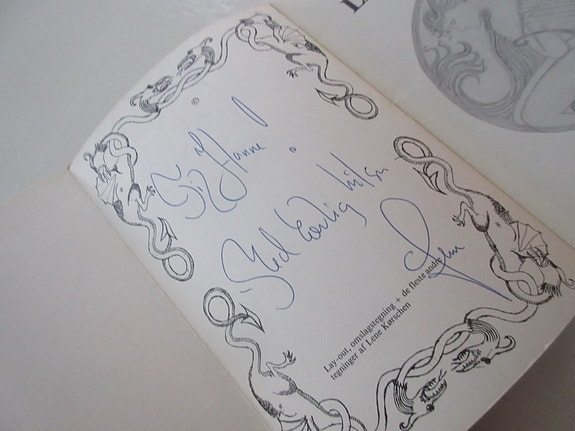 Til Hanne!
Med kærlig hilsen
Lay-out, omslagstegning + de fleste andre
tegninger af Lene Kørschen